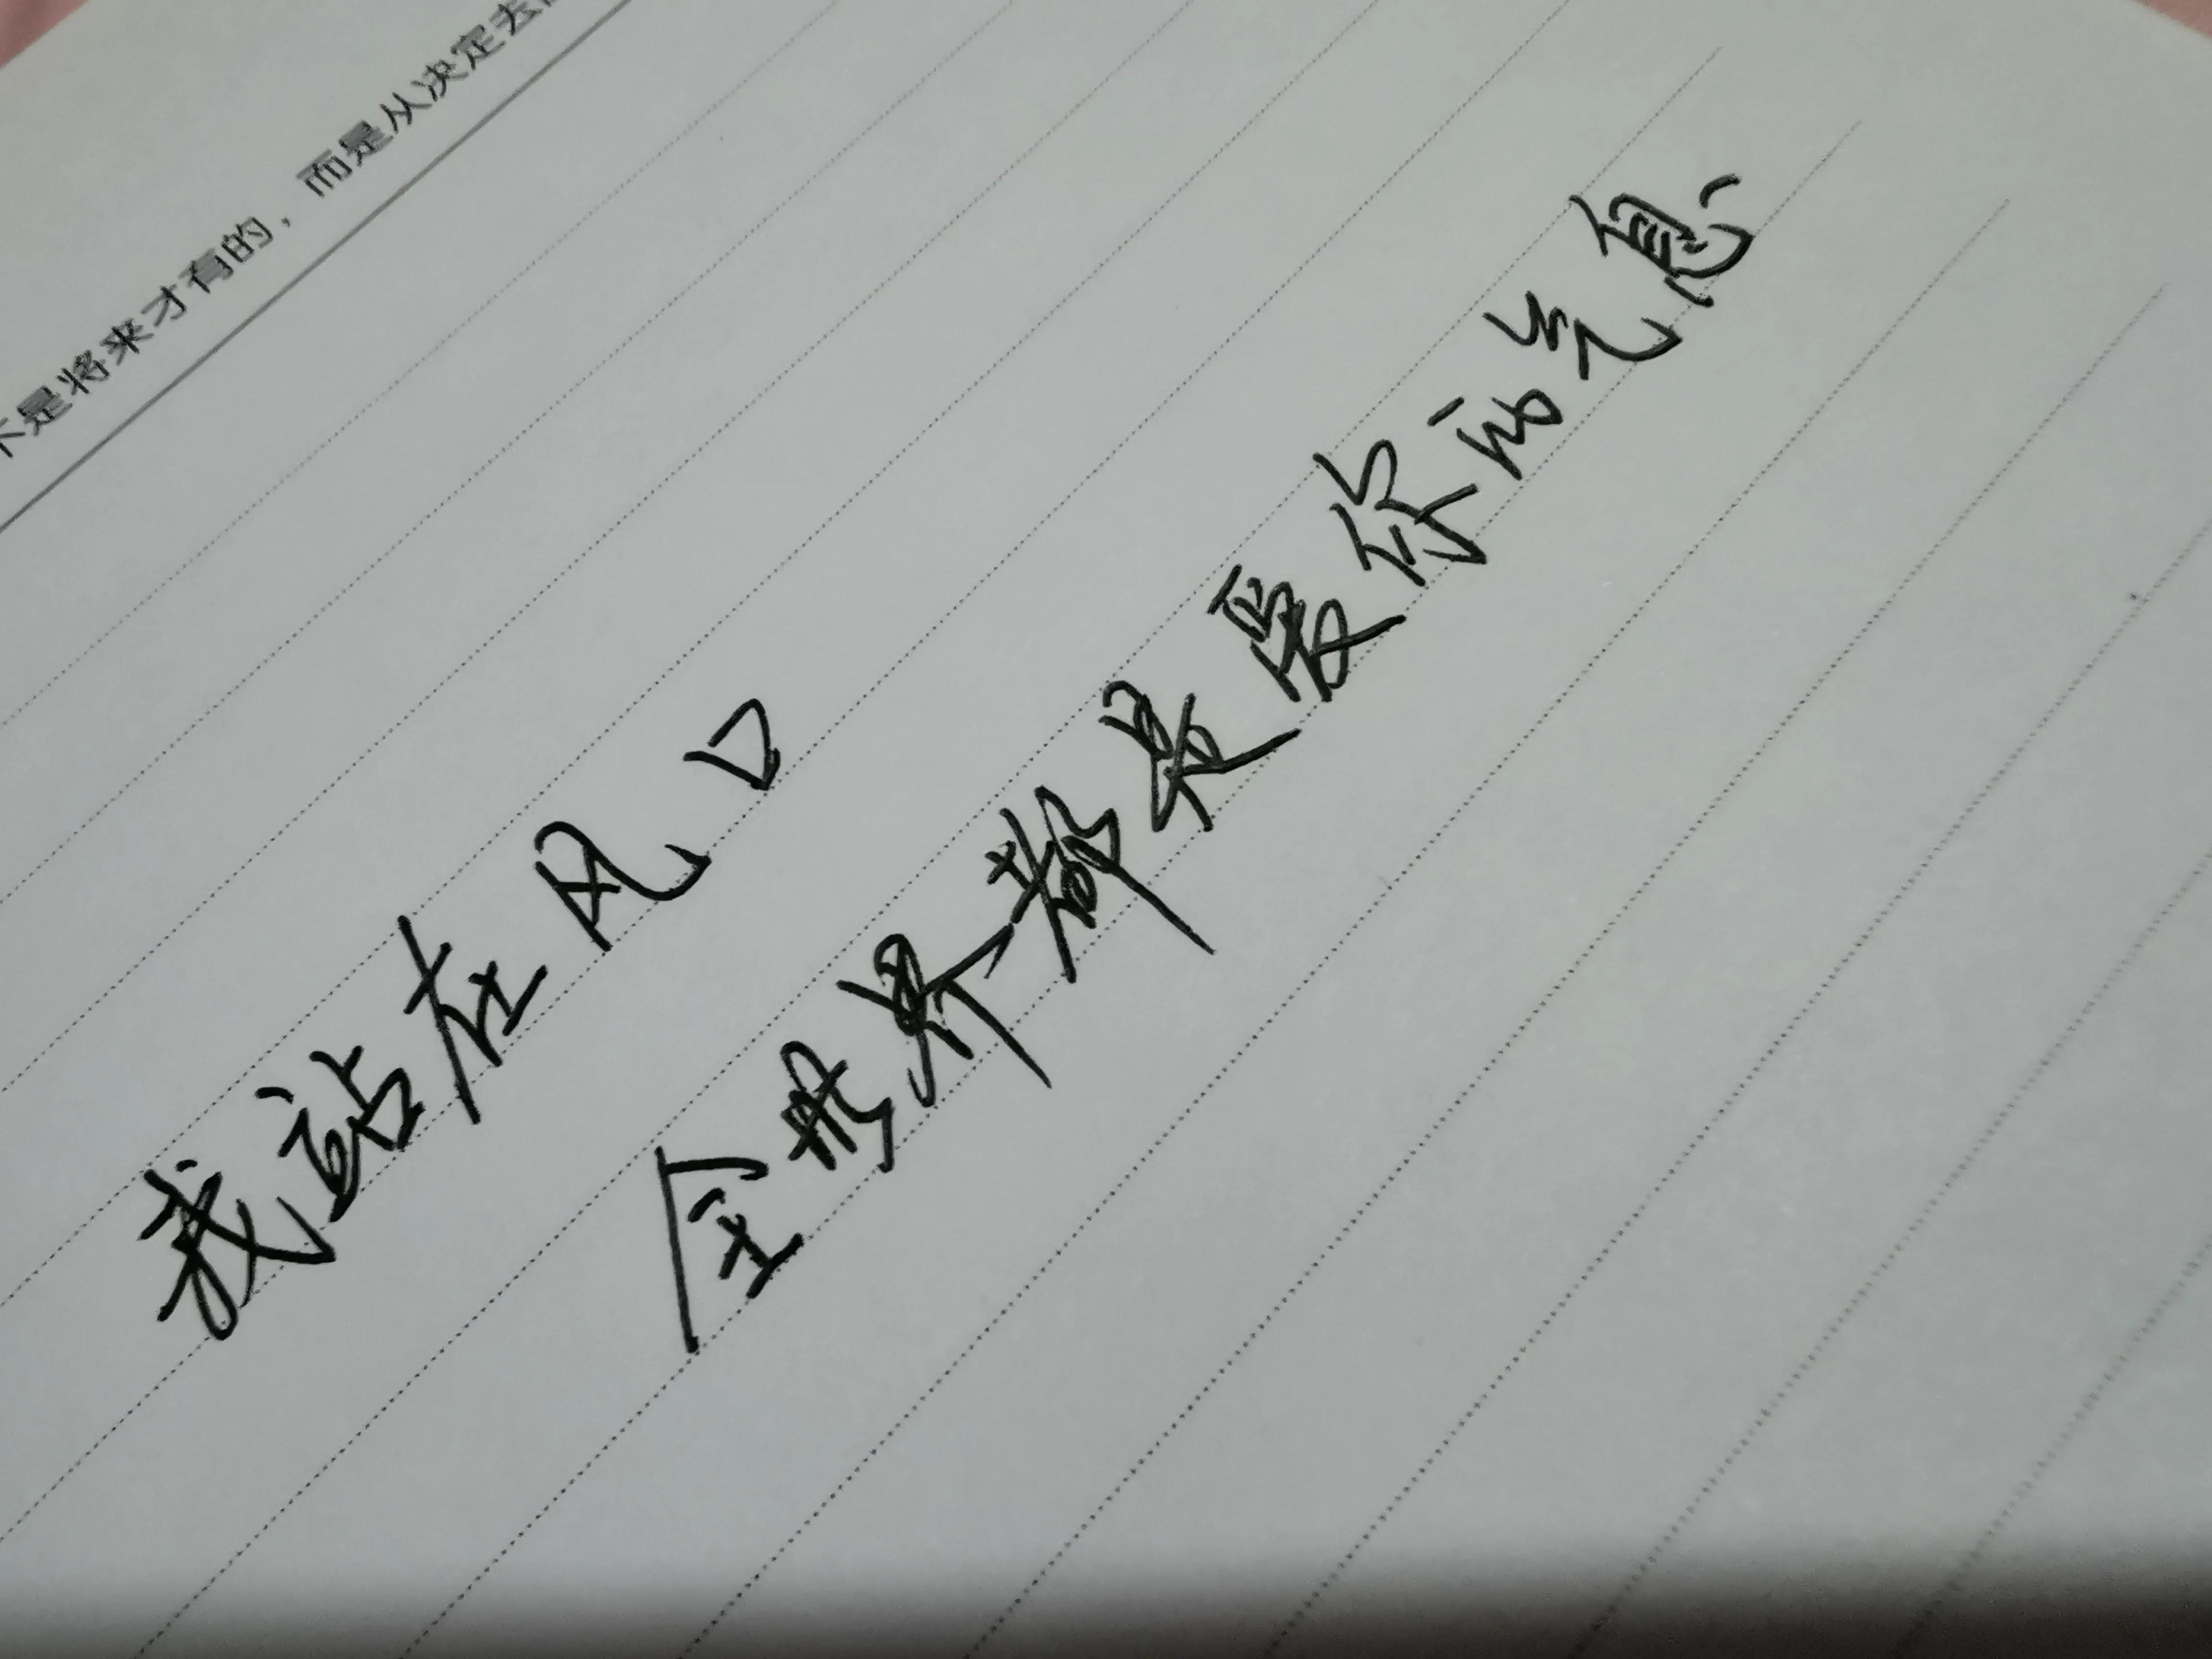 不是将来才有的，而是从决定去
我站在风口
全世界都是爱你的气息